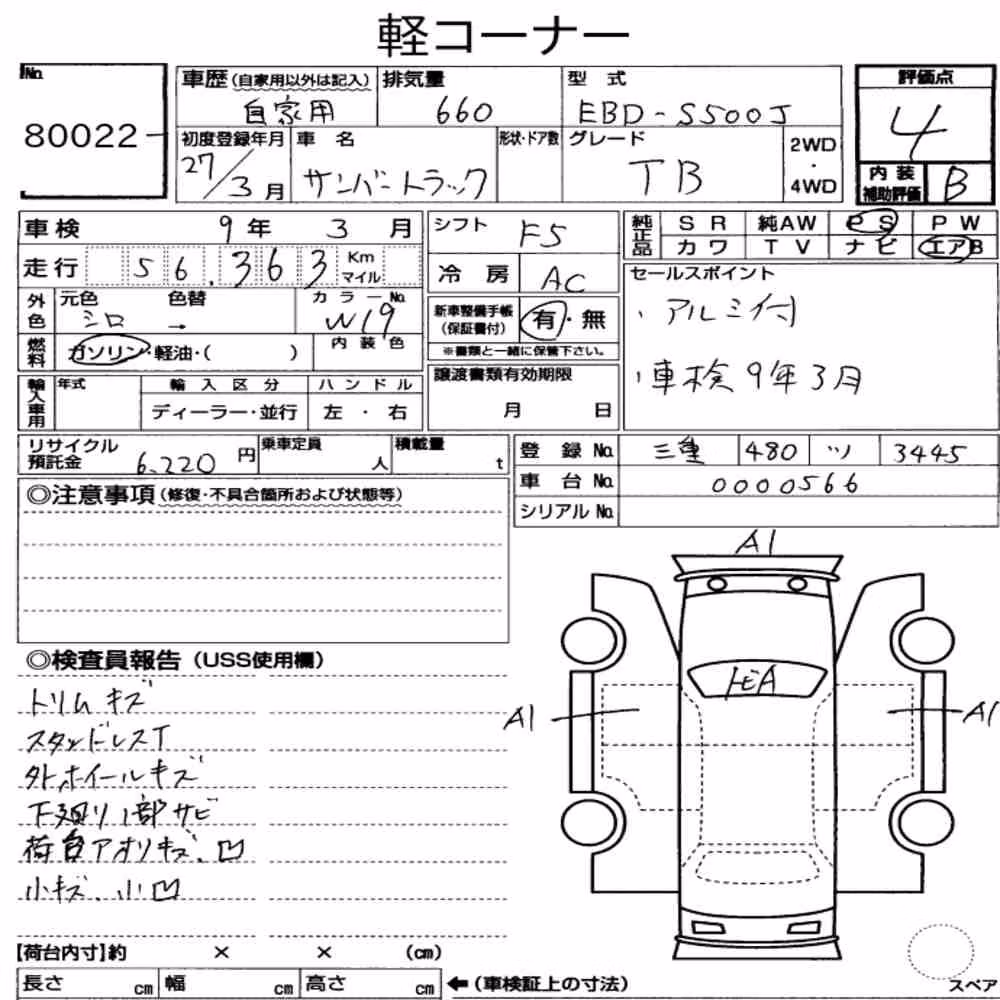 軽コーナー
No.
80022
車歴(自家用以外は記入) 排気量 型式 評価点
自家用 660 EBD-S500J 4
初度登録年月 車名 形状・ドア数 グレード 2WD・4WD
27/3月 サンバートラック TB
内装補助評価 B
車検 9年 3月 シフト F5
純正品 SR 純AW PS PW
カワ TV ナビ エアB
走行 56,363 Km マイル
冷房 AC
セールスポイント
・アルミ付
・車検9年3月
外色 元色 色替 カラーNo.
シロ → W19
新車整備手帳(保証書付) 有・無
※書類と一緒に保管下さい。
燃料 ガソリン・軽油・( ) 内装色
輸入車用 年式 輸入区分 ハンドル
ディーラー・並行 左・右
譲渡書類有効期限
月 日
リサイクル預託金 6,220円 乗車定員 人 積載量 t
登録No. 三重 480 ツ 3445
車台No. 0000566
シリアルNo.
◎注意事項(修復・不具合箇所および状態等)
◎検査員報告(USS使用欄)
トリムキズ
スタッドレスT
外、ホイールキズ
下廻り1部サビ
荷台アオリキズ、凹
小キズ、小凹
A1
A1
A1
【荷台内寸】約 × × (cm)
長さ cm 幅 cm 高さ cm ←(車検証上の寸法)
スペア